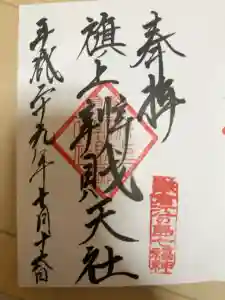 奉拝
旗上辨財天社
平成二十九年七月十六日